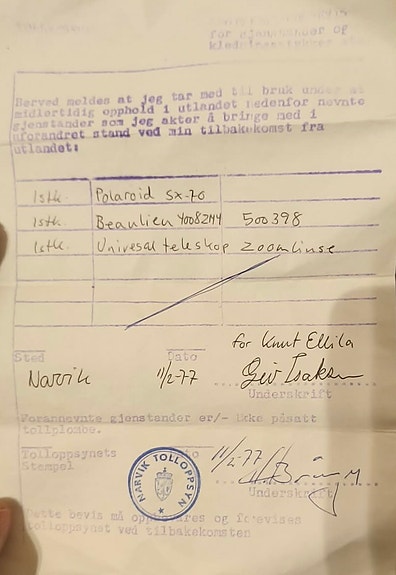 for gjenstander og
Herved meldes at jeg tar med til bruk under et
midlertidig opphold i utlandet nedenfor nevnte
gjenstander som jeg akter å bringe med i
uforandret stand ved min tilbakekomst fra
utlandet:
1stk. Polaroid SX-70
1stk. Beaulieu 4008ZM4 500398
1stk. Univesal teleskop zoomlinse
for Knut Ellila
Sted Dato
Narvik 11/2-77 Geir Isaksen
Underskrift
Forannevnte gjenstander er/- ikke påsatt
tollplombe.
Tolloppsynets Dato
Stempel 11/2-77
NARVIK TOLLOPPSYN
Underskrift
Dette bevis må oppbevares og forevises
tolloppsynet ved tilbakekomsten